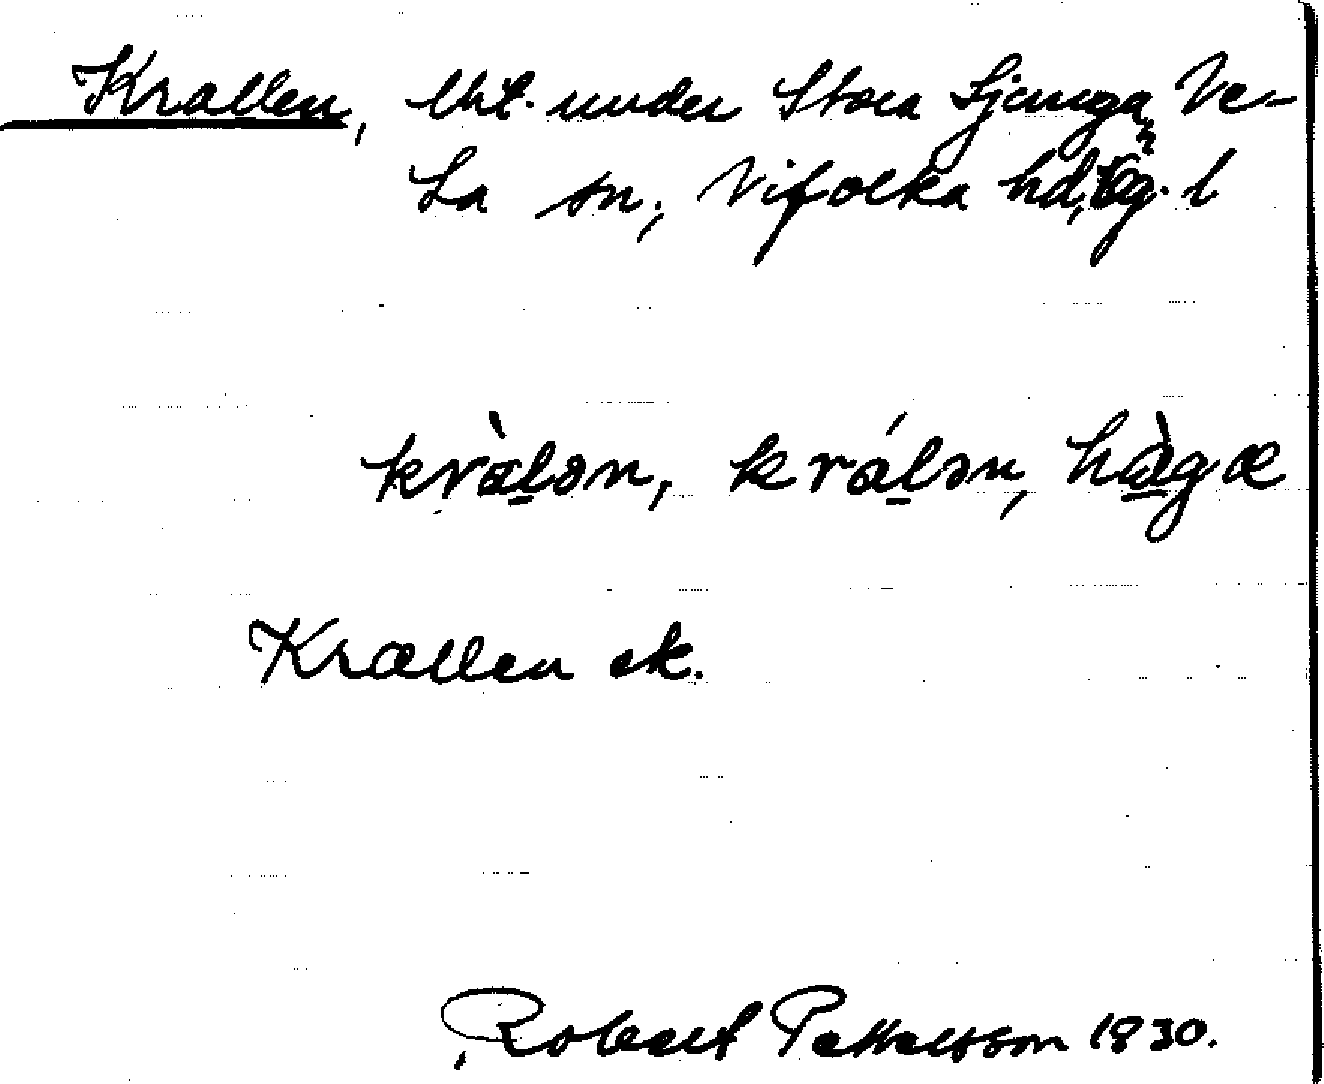 Krallen, lht. under Stora Sjunga, Ve-
ta sn, Vifolka hd, Ög. l
kràlən, králən, hàgæ
Krallen ek.
Robert Pettersson 1930.